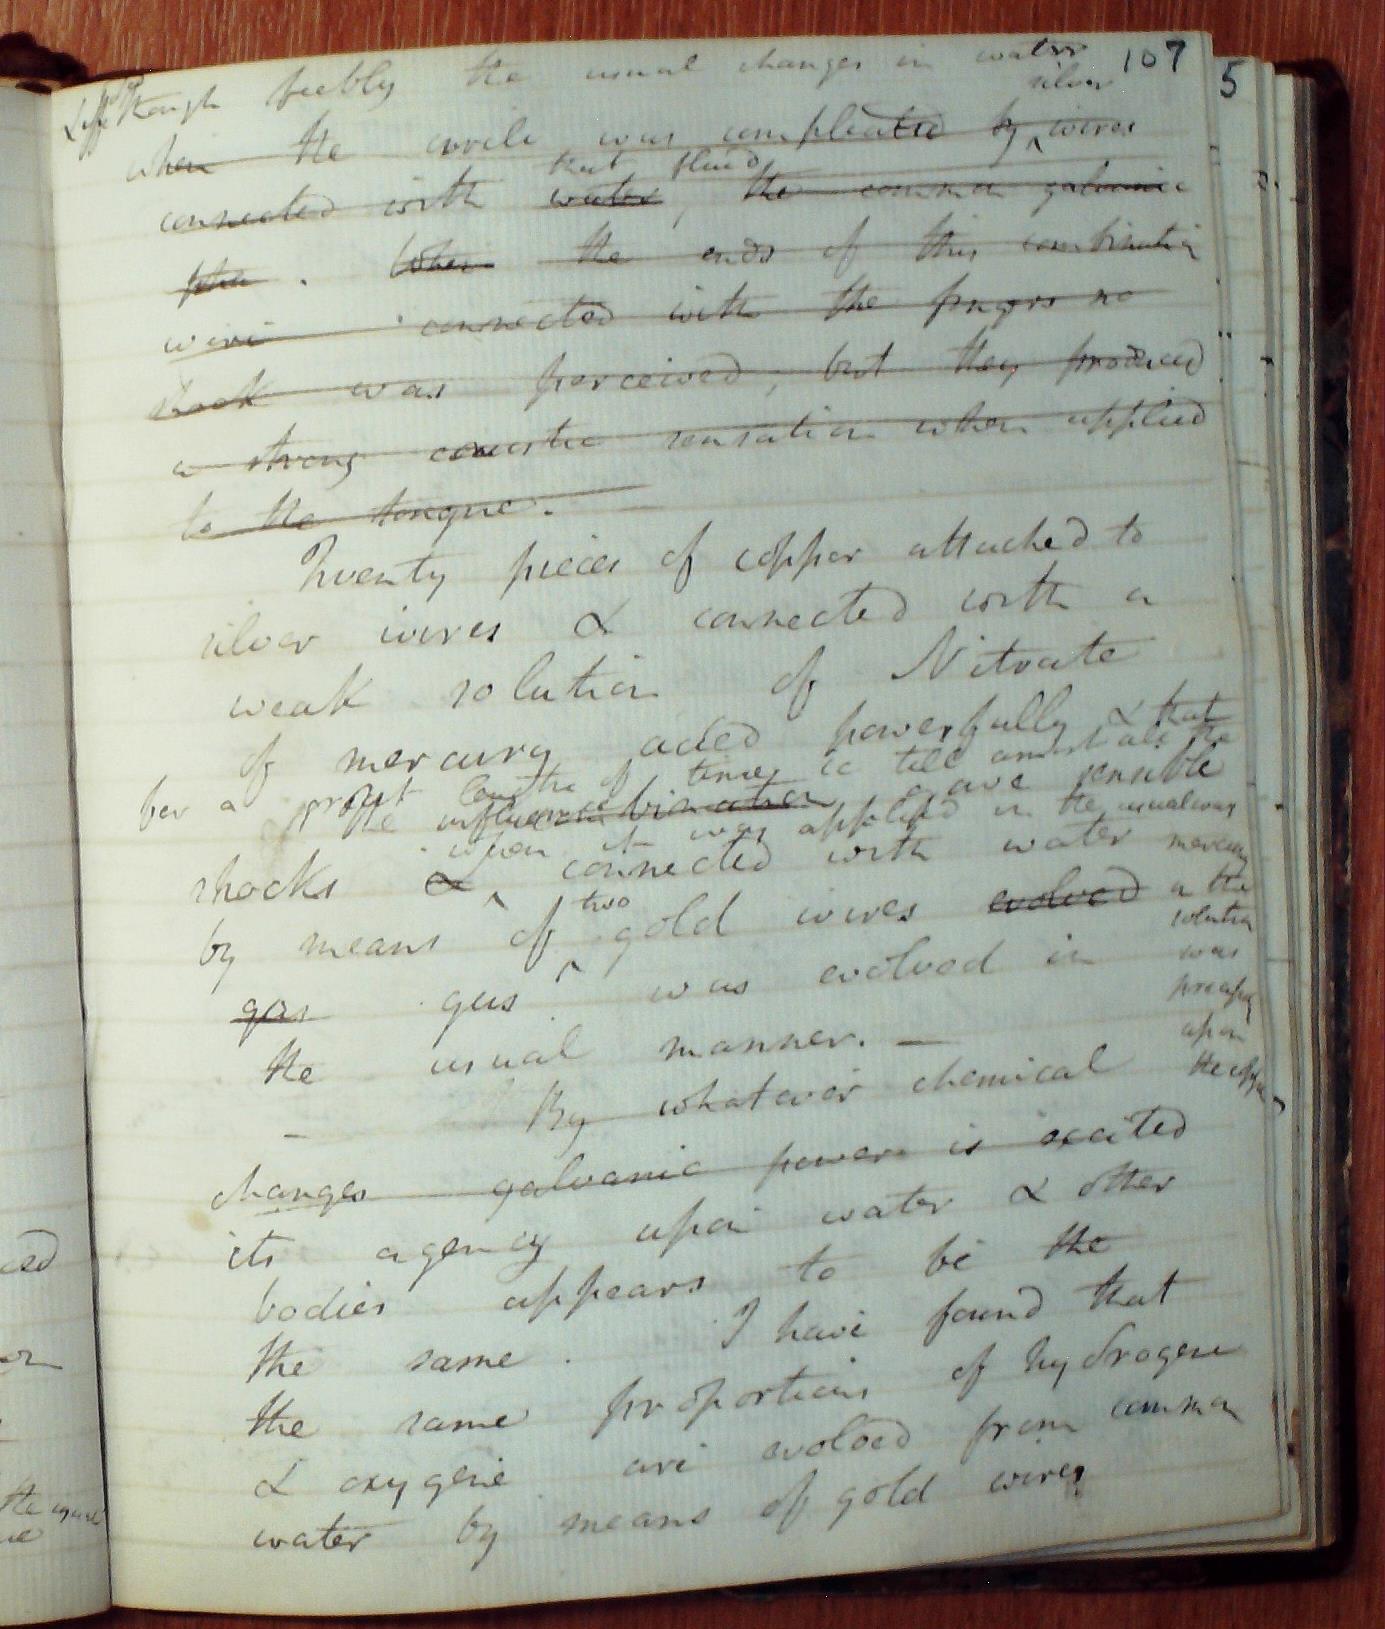 107
5
though feebly the usual changes in water
silver
when the circle was compleated by wires
that fluid
connected with water, the common galvanic
. When the ends of this combination
were connected with the fingers no
shock was perceived, but they produced
a strong caustic sensation when applied
to the tongue.
Twenty pieces of copper attached to
silver wires & connected with a
weak solution of Nitrate
of mercury acted powerfully & that
for a great length of time; ie till almost all the
the combination gave sensible
when it was applied in the usual way
shocks & connected with water
two
by means of gold wires evolved
gas gas was evolved in
the usual manner. —
mercury
in the
solution
was
upon
the copper
— By whatever chemical
changes galvanic power is excited
its agency upon water & other
bodies appears to be the
the same. I have found that
the same proportions of hydrogene
& oxygene are evolved from common
water by means of gold wires
the usual